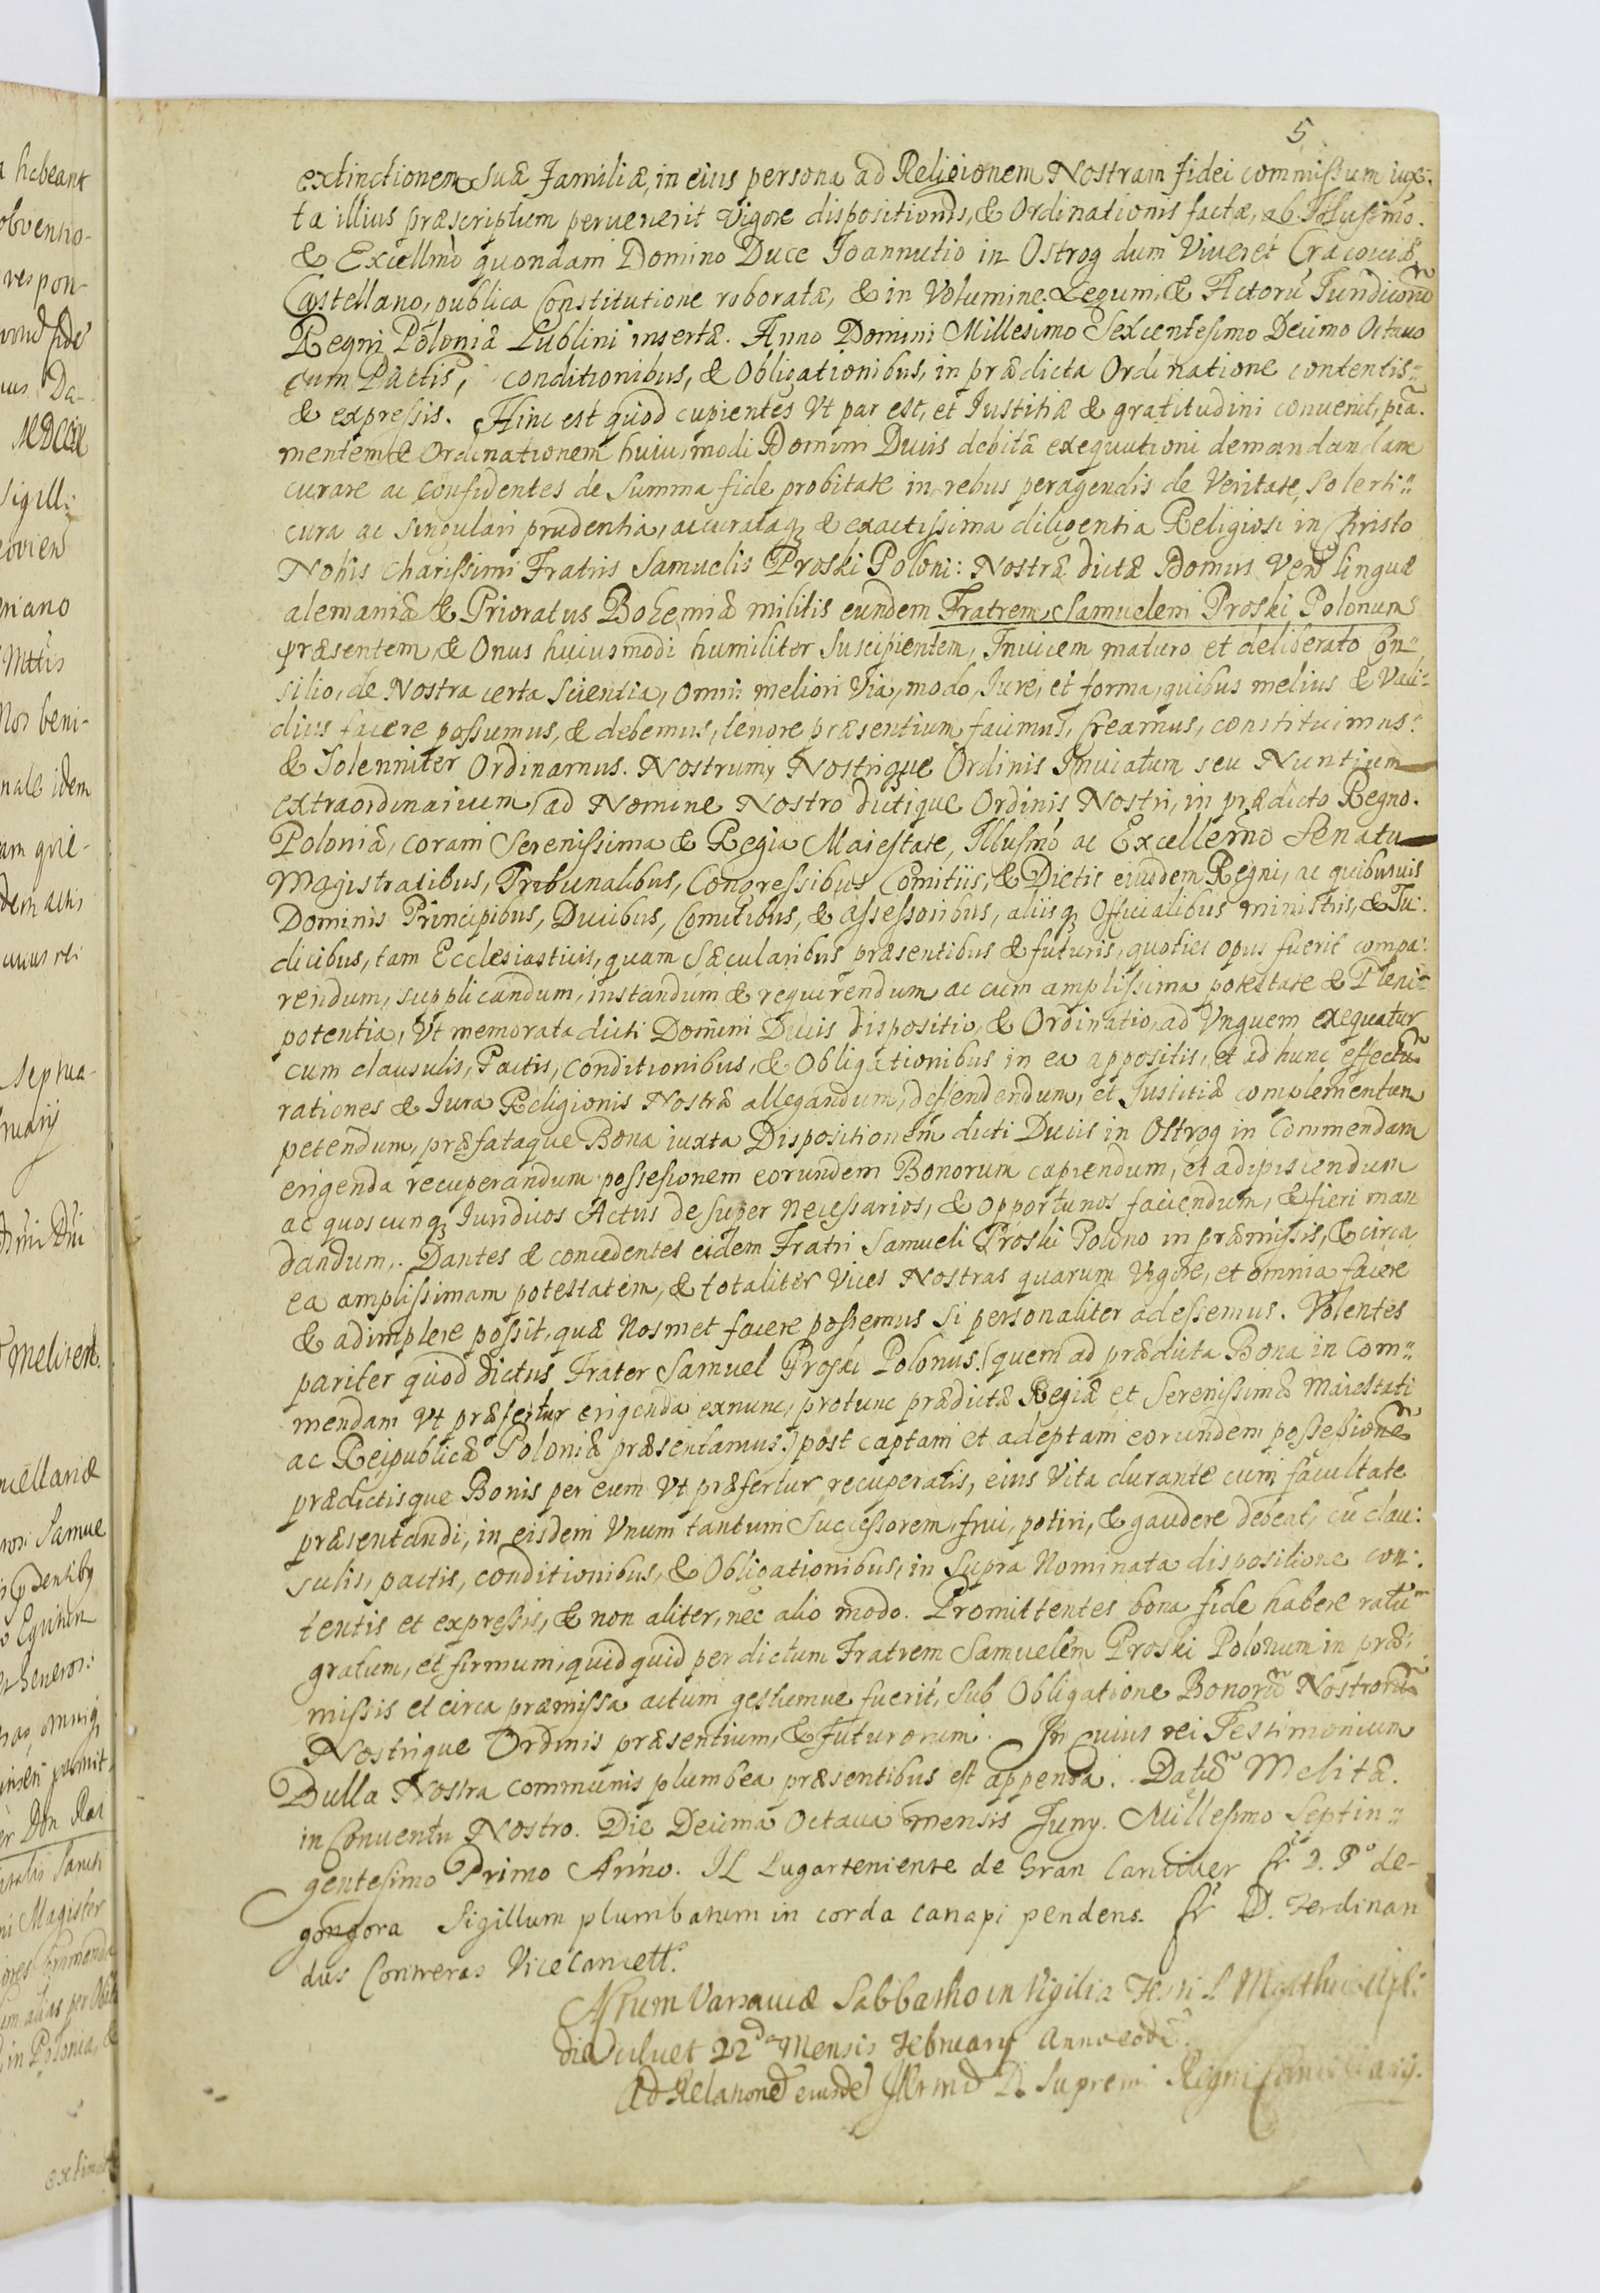 5
extinctionem suæ Familiæ, in eius persona ad Religionem Nostram fidei commissum iux:
ta illius præscriptum peruenerit Vigore dispositionis, & Ordinationis factæ, ab Illusmo.
& Excellmo quondam Domino Duce Joannutio in Ostrog dum Viueret Cracouiæ
Castellano, publica Constitutione roboratæ, & in Volumine Legum, & Actorũ Juridicorũ
Regni Poloniæ Lublini insertæ. Anno Domini Millesimo Sexcentesimo Decimo Octauo
cum Pactis, conditionibus, & Obligationibus, in prædicta Ordinatione contentis:
& expressis. Hinc est quod cupientes Vt par est, et Justitiæ & gratitudini conuenit, piã.
mentem & Ordinationem huiusmodi Domini Ducis debitæ exequutioni demandandam
curare ac confidentes de Summa fide probitate in rebus peragendis de Veritate, solerti:
cura ac singulari prudentia, accurataq & exactissima diligentia Religiosi in Christo
Nobis Charissimi Fratris Samuelis Proski Poloni: Nostræ dictæ Domus Vend linguæ
alemaniæ & Prioratus Bohemiæ militis eundem Fratrem Samuelem Proski Polonum
præsentem, & Onus huiusmodi humiliter Suscipientem, Inuicem maturo et deliberato Con-
silio, de Nostra certa Scientia, omni meliori Via, modo, Jure, et forma, quibus melius & Vali-
dius facere possumus, & debemus, tenore præsentium facimus, Creamus, constituimus:
& Solenniter Ordinamus. Nostrum, Nostrique Ordinis Inuiatum seu Nuntium
extraordinarium, ad Nomine Nostro dictique Ordinis Nostri, in prædicto Regno.
Poloniæ, coram Serenissima & Regia Maiestate, Illusmo ac Excellemo Senatu
Magistratibus, Tribunalibus, Congressibus Comitiis, & Dictis eiusdem Regni, ac quibusuis
Dominis Principibus, Ducibus, Comitibus, & Assessoribus, aliisq Officialibus ministris, & Ju:
dicibus, tam Ecclesiasticis, quam Sæcularibus præsentibus & futuris, quoties opus fuerit compa:
rendum, supplicandum, instandum & requirendum ac cum amplissima potestate & Pleni-
potentia, Vt memorata dicti Domini Ducis dispositio, & Ordinatio, ad Vnguem exequatur
cum clausulis, Pactis, Conditionibus, & Obligationibus in ea appositis, et ad hunc effectũ
rationes & Jura Religionis Nostræ allegandum, defendendum, et Justitiæ complementum
petendum, præfataque Bona iuxta Dispositionem dicti Ducis in Ostrog in Commendam
erigenda recuperandum possessionem eorundem Bonorum capiendum, et adipiscendum
ac quoscunq Juridicos Actus desuper Necessarios, & opportunos faciendum, & fieri man
dandum. Dantes & concedentes eidem Fratri Samueli Proski Polono in præmissis, & circa
ea amplissimam potestatem, & totaliter Vices Nostras quarum Vigore, et omnia facere
& adimplere possit, quæ Nosmet facere possemus si personaliter adessemus. Volentes
pariter quod dictus Frater Samuel Proski Polonus (quem ad prædicta Bona in Com:
mendam Vt præfertur erigenda exnunc, protunc prædictæ Regiæ et Serenissimæ Maiestati
ac Reipublicæ Poloniæ præsentamus:) post captam et adeptam eorundem possessionẽ
prædictisque Bonis per eum Vt præfertur recuperatis, eius Vita durante cum facultate
præsentandi, in eisdem Vnum tantum Successorem, frui, potiri, & gaudere debeat, cũ clau:
sulis, pactis, conditionibus, & Obligationibus, in Supra Nominata dispositione con:
tentis et expressis, & non aliter, nec alio modo. Promittentes bona fide habere ratũ
gratum, et firmum, quidquid per dictum Fratrem Samuelem Proski Polonum in præ:
missis et circa præmissa actum gestumue fuerit, sub Obligatione Bonorũ Nostrorũ
Nostrique Ordinis præsentium, & futurorum. In Cuius rei Testimonium
Bulla Nostra communis plumbea præsentibus est appensa. Datũ Melitæ.
in Conuentu Nostro. Die Decima Octaua mensis Juny. Millesmo Septin:
gentesimo Primo Anno. IL Lugarteniente de Gran Canciller fr D. Po de-
gongora Sigillum plumbatum in corda canapi pendens. fr D. Ferdinan
dus Contreras Vicecancell.
Actum Varsauiæ Sabbatho in Vigilia Festi S Matthiæ Apli:
die scilicet 22da Mensis February Anno eodẽ
Ad Relationẽ eiusdẽ Illrmi D. Supremi Regni Cancellarij.